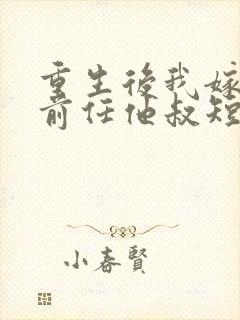 重生後我嫁
前任他叔短
小春賢